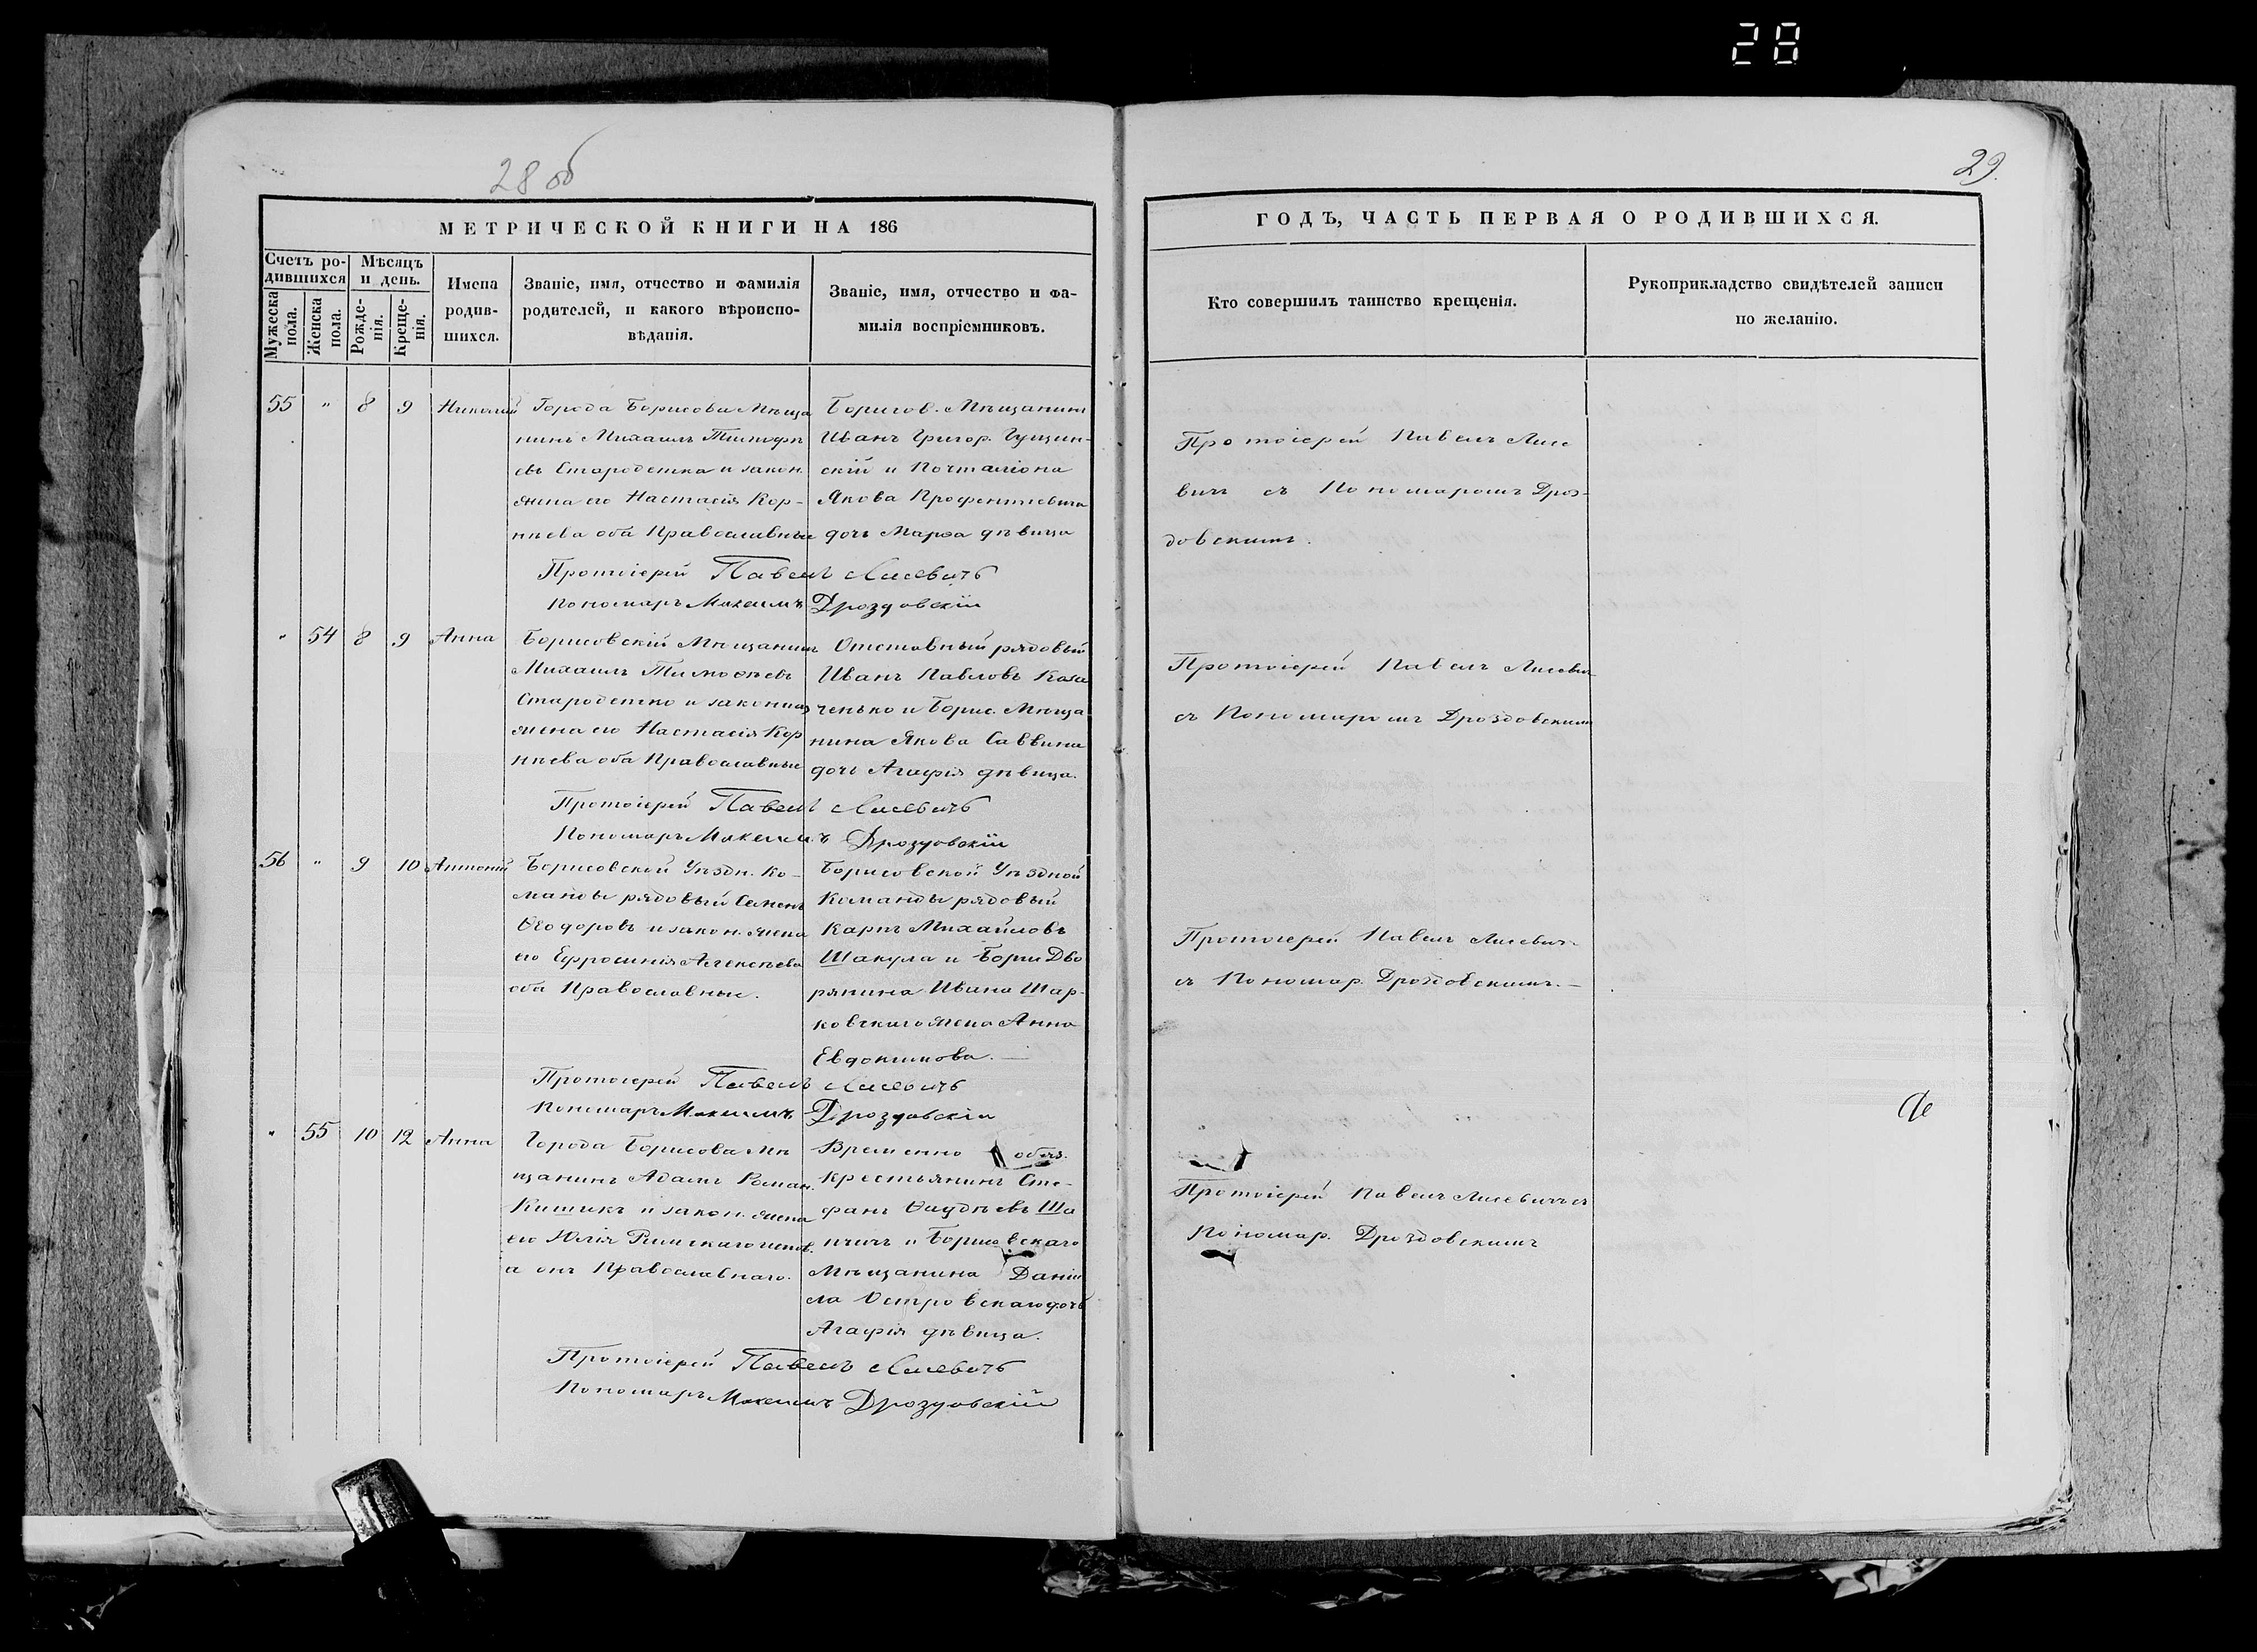 28
28 об
29.
МЕТРИЧЕСКОЙ КНИГИ НА 186
Счетъ ро-
дившихся
Мужеска
пола.
Женска
пола.
Мѣсяцъ
и день.
Рожде-
нія.
Креще-
нія.
Имена
родив-
шихся.
Званіе, имя, отчество и фамилія
родителей, и какого вѣроиспо-
вѣданія.
Званіе, имя, отчество и фа-
милія воспріемниковъ.
ГОДЪ, ЧАСТЬ ПЕРВАЯ О РОДИВШИХСЯ.
Кто совершилъ таинство крещенія.
Рукоприкладство свидѣтелей записи
по желанію.
55 " 8 9 Николай
Города Борисова Мѣща
нинъ Михаилъ Тимофѣ
евъ Стародетка и закон.
жена его Настасія Кор-
нѣева оба Православные
Борисов. Мѣщанинъ
Иванъ Григор. Гущин-
скій и Почталіона
Якова
дочь Марѳа дѣвица
Протоіерей Павелъ Лисевичъ
Пономарь Максимъ Дроздовскій
Протоіерей Павелъ Лисе
вичъ съ Пономаромъ Дроз-
довскимъ.
" 54 8 9 Анна
Борисовскій Мѣщанинъ
Михаилъ Тимоѳѣевъ
Стародетко и законная
жена его Настасія Кор
нѣева оба Православные
Отставный рядовый
Иванъ Павловъ Каза
ченько и Борис. Мѣща
нина Якова Саввина
дочь Агафія дѣвица.
Протоіерей Павелъ Лисевичъ
Пономарь Максимъ Дроздовскій
Протоіерей Павелъ Лисевич
съ Пономаромъ Дроздовскимъ
56 " 9 10 Антоній
Борисовской Уѣздн. Ко-
манды рядовый Семенъ
Ѳеодоровъ и закон. жена
его Ефросинія Алексѣева
оба Православные.
Борисовской Уѣздной
Команды рядовый
Карпъ Михайловъ
Шакула и Борис Дво
рянина Ивана Шар-
ковскаго жена Анна
Евдокимова.
Протоіерей Павелъ Лисевичъ
Пономарь Максимъ Дроздовскій
Протоіерей Павелъ Лисевичъ
съ Пономар. Дроздовскимъ.
" 55 10 12 Анна
Города Борисова Мѣ
щанинъ Адамъ Роман.
Кишикъ и закон. жена
его Юлія Римскаго испов.
а онъ Православнаго.
Временно обяз.
Крестьянинъ Сте-
фанъ Ша
и Борисовскаго
Мѣщанина Даніи
ла Островскаго дочь
Агафія дѣвица.
Протоіерей Павелъ Лисевичъ
Пономарь Максимъ Дроздовскій
Протоіерей Павелъ Лисевичъ съ
Пономар. Дроздовскимъ